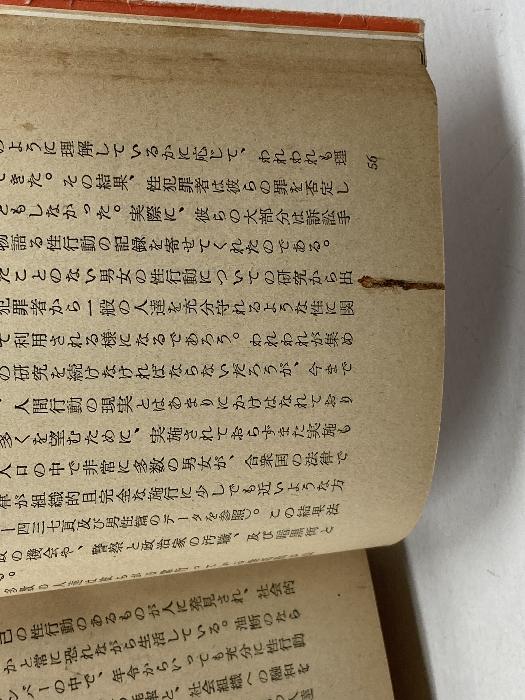 56
のように理解しているかに応じて、われわれも理
てきた。その結果、性犯罪者は彼らの罪を否定し
ともしなかった。実際に、彼らの大部分は訴訟手
物語る性行動の記録を寄せてくれたのである。
たことのない男女の性行動についての研究から出
犯罪者から一般の人達を充分守れるような性に関
て利用される様になるであろう。われわれが集め
の研究を続けなければならないだろうが、今まで
、人間行動の現実とはあまりにかけはなれており
多くを望むために、実施されておらずまた実施も
人口の中で非常に多数の男女が、合衆国の法律で
律が組織的且完全な施行に少しでも近いような方
一四三七頁及び男性篇のデータを参照)。この結果法
の機会や、警察と政治家の汚職、及び
る。
己の性行動のあるものが人に発見され、社会的
かと常に恐れながら生活している。油断のなら
バーの中で、年令からいっても充分に性行動
解と、社会組織への融和を
人達